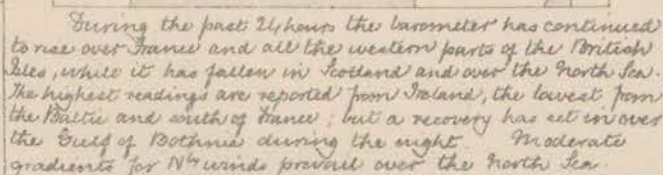 During the past 24 hours the barometer has continued
to rise over France and all the western parts of the British
Isles, while it has fallen in Scotland and over the North Sea.
The highest readings are reported from Ireland, the lowest from
the Baltic and south of France; but a recovery has set in over
the Gulf of Bothnia during the night. Moderate
gradients for Nly winds prevail over the North Sea.